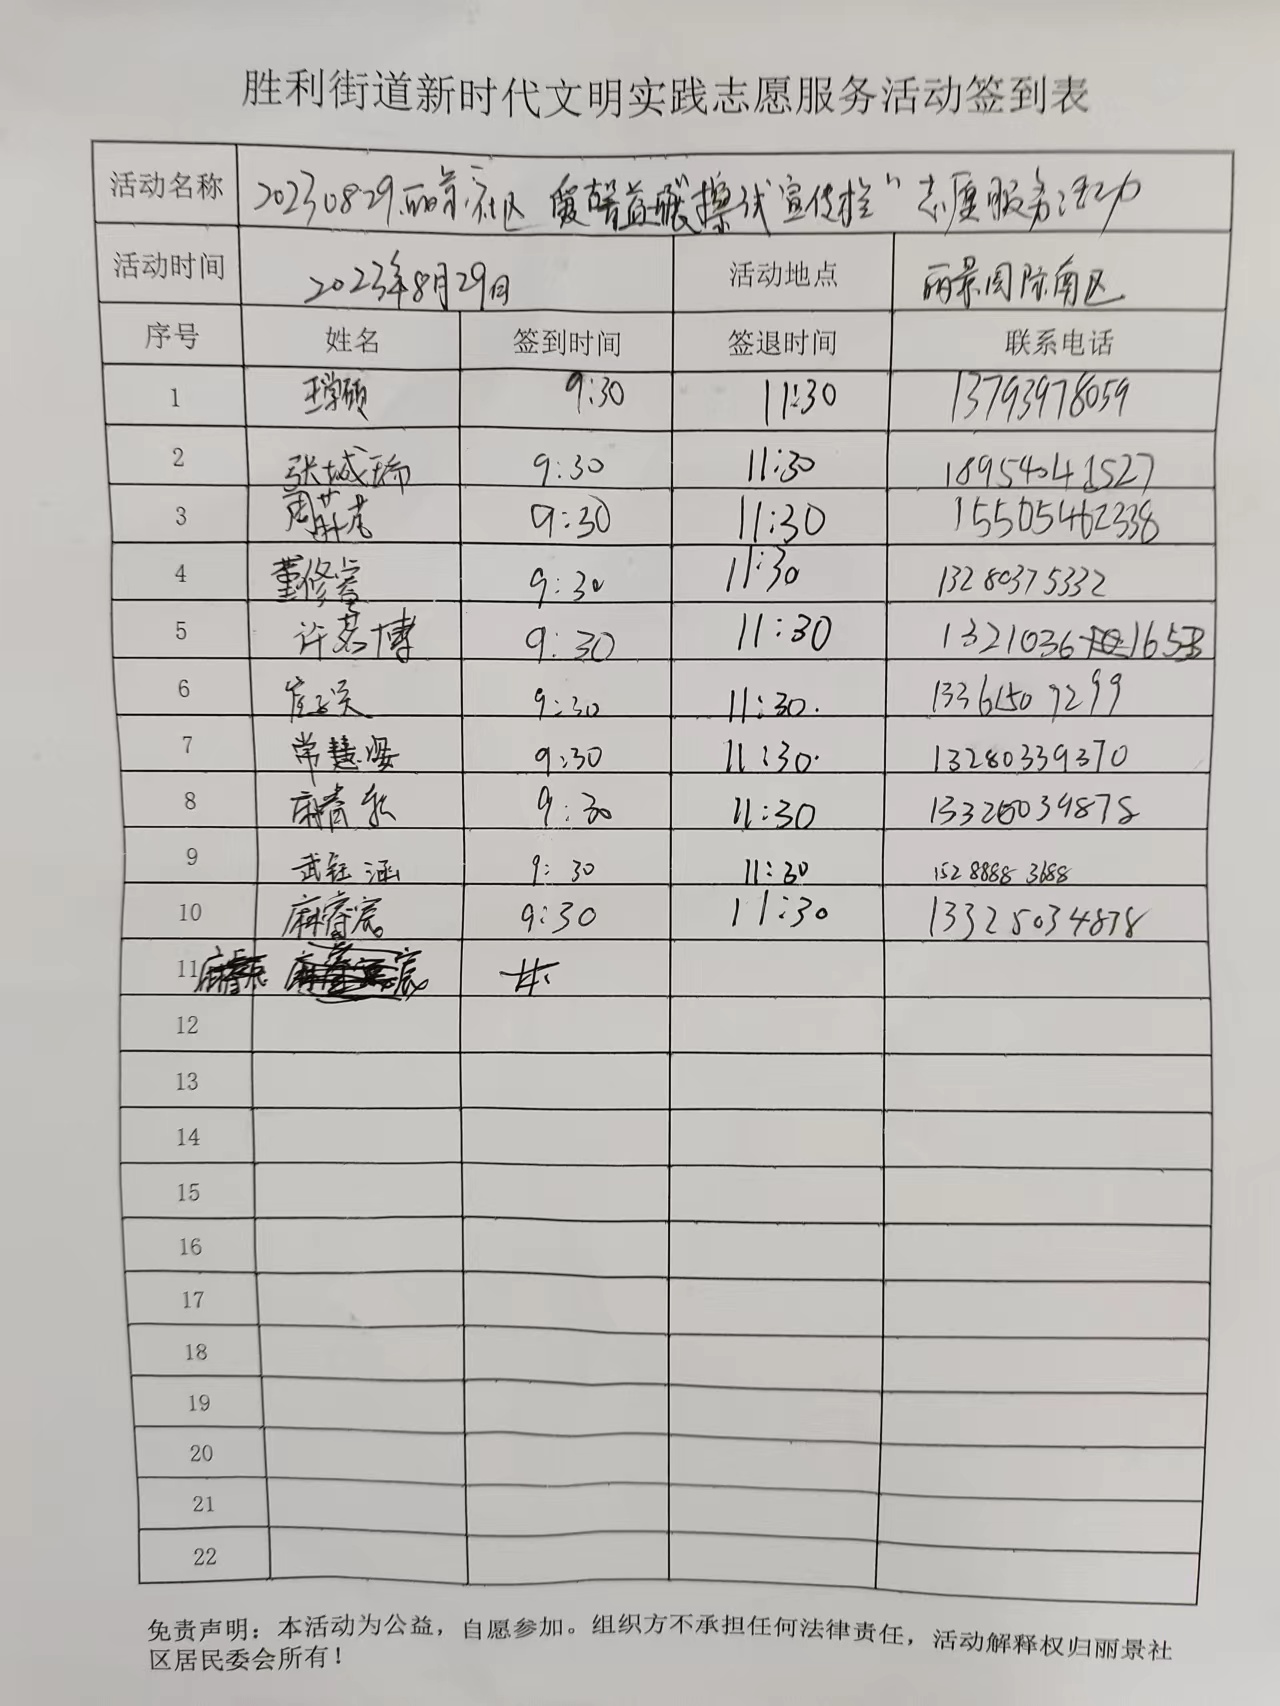 胜利街道新时代文明实践志愿服务活动签到表
活动名称 20230829丽景社区 爱馨益暖“擦拭宣传栏”志愿服务活动
活动时间 2023年8月29日 活动地点 丽景国际南区
序号 姓名 签到时间 签退时间 联系电话
1 王学硕 9:30 11:30 13793978059
2 张城瑞 9:30 11:30 18954041527
3 周 9:30 11:30 15505462338
4 董修睿 9:30 11:30 13280375332
5 许茗博 9:30 11:30
6 9:30 11:30. 13361509299
7 常慧 9:30 11:30. 13280339370
8 麻睿 9:30 11:30
9 武钰涵 9:30 11:30 15288883688
10 麻睿宸 9:30 11:30 13325034878
11
12
13
14
15
16
17
18
19
20
21
22
免责声明：本活动为公益，自愿参加。组织方不承担任何法律责任，活动解释权归丽景社
区居民委会所有！